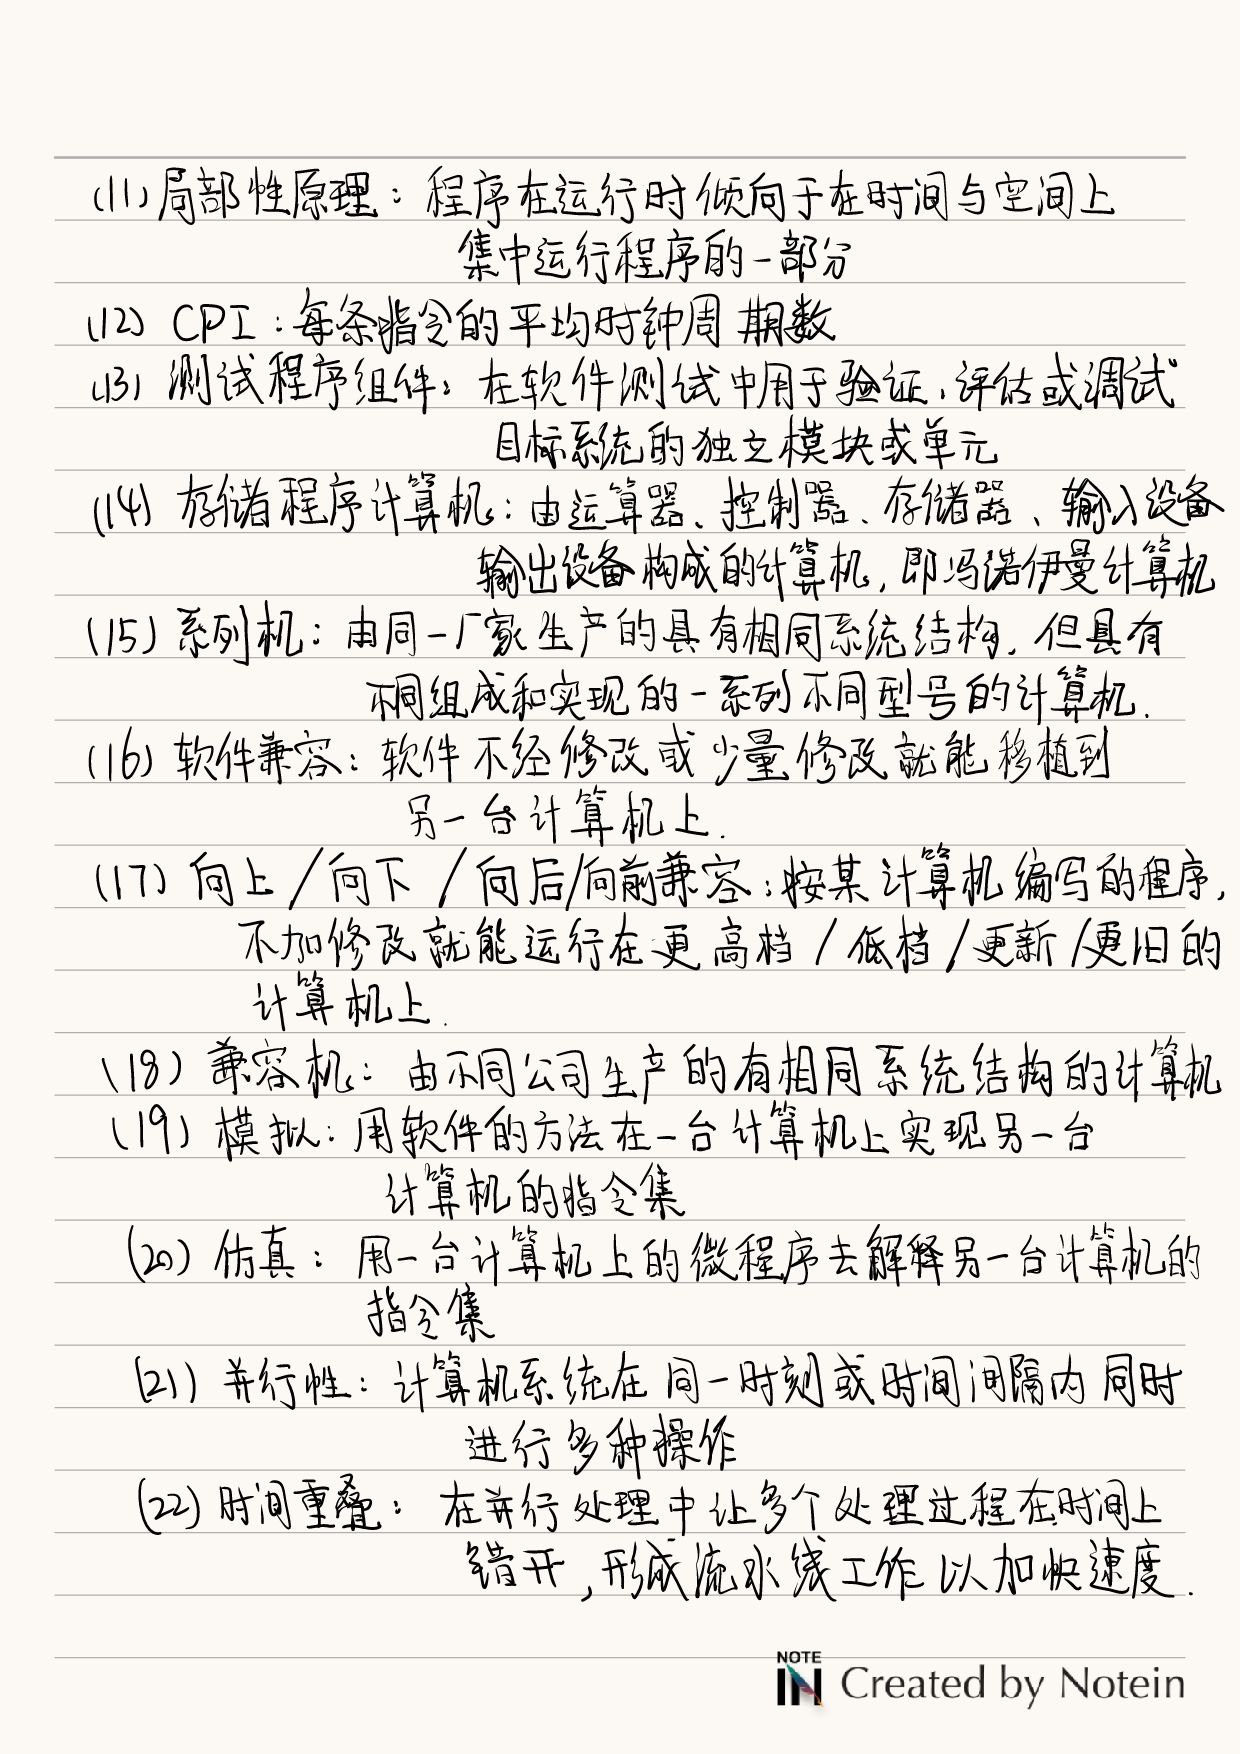 (11) 局部性原理：程序在运行时倾向于在时间与空间上
集中运行程序的一部分
(12) CPI：每条指令的平均时钟周期数
(13) 测试程序组件：在软件测试中用于验证、评估或调试
目标系统的独立模块或单元
(14) 存储程序计算机：由运算器、控制器、存储器、输入设备
输出设备构成的计算机，即冯诺伊曼计算机
(15) 系列机：由同一厂家生产的具有相同系统结构，但具有
不同组成和实现的一系列不同型号的计算机.
(16) 软件兼容：软件不经修改或少量修改就能移植到
另一台计算机上.
(17) 向上/向下/向后/向前兼容：按某计算机编写的程序，
不加修改就能运行在更高档/低档/更新/更旧的
计算机上.
(18) 兼容机：由不同公司生产的有相同系统结构的计算机
(19) 模拟：用软件的方法在一台计算机上实现另一台
计算机的指令集
(20) 仿真：用一台计算机上的微程序去解释另一台计算机的
指令集
(21) 并行性：计算机系统在同一时刻或时间间隔内同时
进行多种操作
(22) 时间重叠：在并行处理中让多个处理过程在时间上
错开，形成流水线工作以加快速度.
NOTE
IN Created by Notein